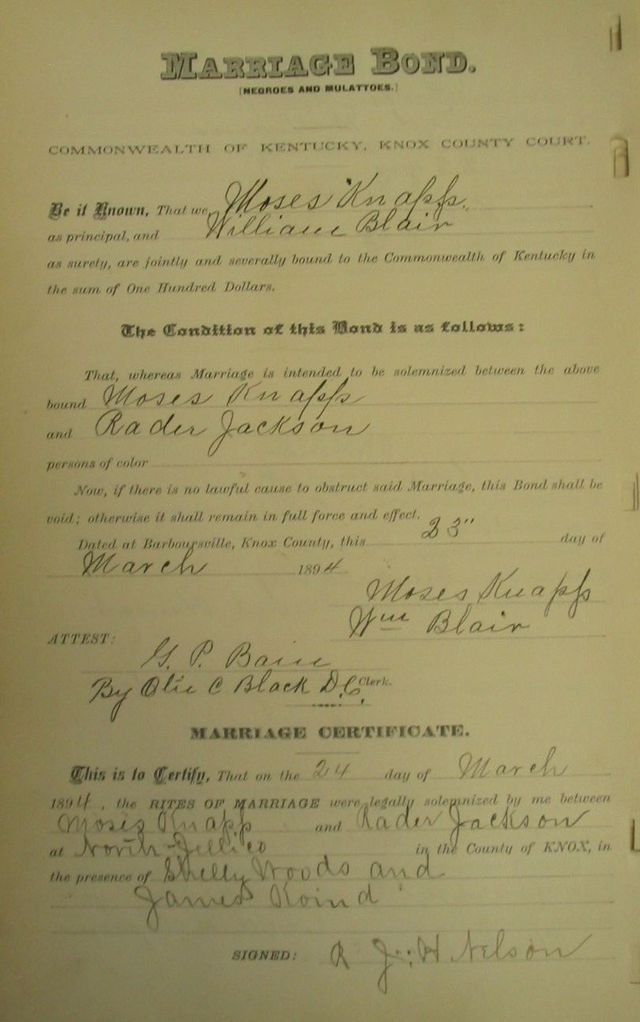 MARRIAGE BOND.
[NEGROES AND MULATTOES.]
COMMONWEALTH OF KENTUCKY, KNOX COUNTY COURT.
Be it Known, That we, Moses Knapp.
as principal, and William Blair
as surety, are jointly and severally bound to the Commonwealth of Kentucky in
the sum of One Hundred Dollars.
The Condition of this Bond is as follows:
That, whereas Marriage is intended to be solemnized between the above
bound Moses Knapp
and Rader Jackson
persons of color
Now, if there is no lawful cause to obstruct said Marriage, this Bond shall be
void; otherwise it shall remain in full force and effect.
Dated at Barboursville, Knox County, this 23" day of
March 1894
Moses Knapp
Wm Blair
ATTEST:
G. P. Bain
By Olie C Black D.C. Clerk.
MARRIAGE CERTIFICATE.
This is to Certify, That on the 24 day of March
1894, the RITES OF MARRIAGE were legally solemnized by me between
Moses Knapp and Rader Jackson
at North Jellico in the County of KNOX, in
the presence of Shelly Woods and
James
SIGNED: R J. H Nelson